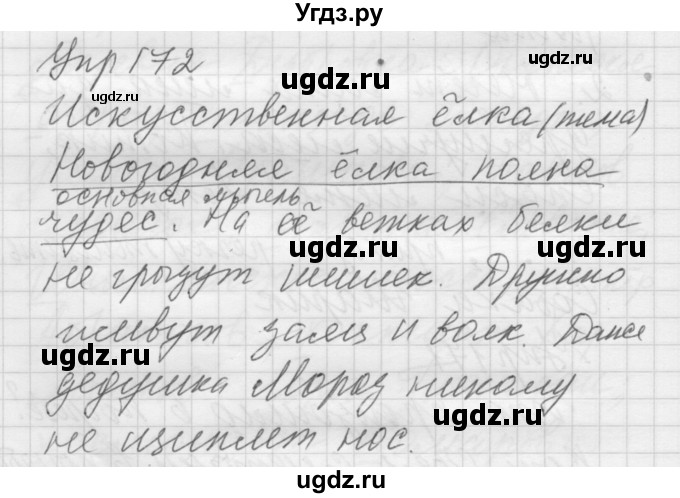 Угдз.ру
Упр 172
Искусственная ёлка (тема)
Новогодняя ёлка полна
основная мысль
чудес. На её ветках белки
не грызут шишек. Дружно
живут заяц и волк. Даже
дедушка Мороз никому
не щиплет нос.
ugdz.ru
ugdz.ru
ugdz.ru
ugdz.ru
ugdz.ru
ugdz.ru
ugdz.ru
ugdz.ru
ugdz.ru
ugdz.ru